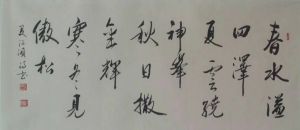 春水溢
四澤
夏雲繞
神峯
秋日撒
金輝
寒冬見
傲松